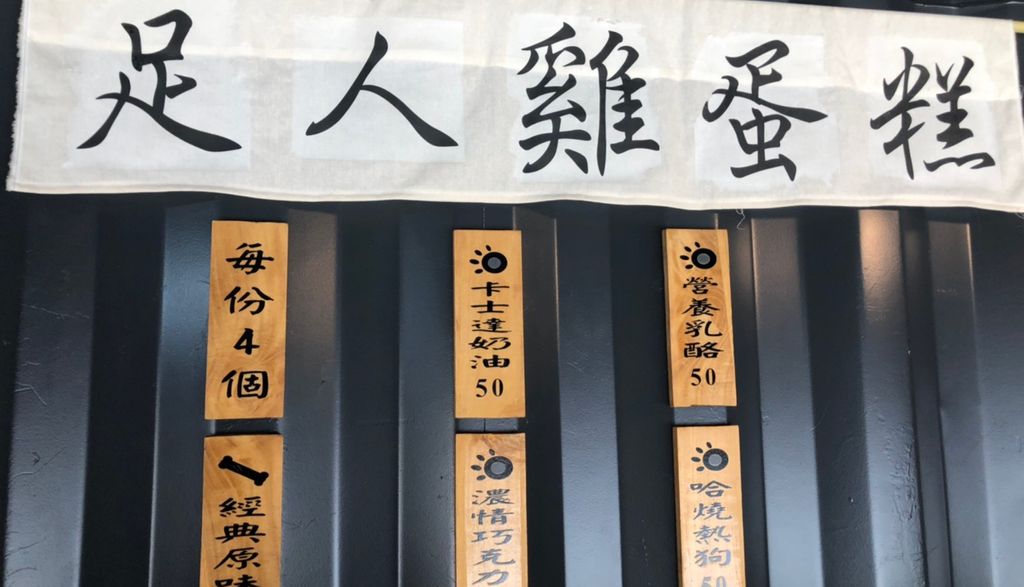 足人雞蛋糕
每份4個
卡士達奶油50
營養乳酪50
經典原味
濃情巧克力
哈燒熱狗50